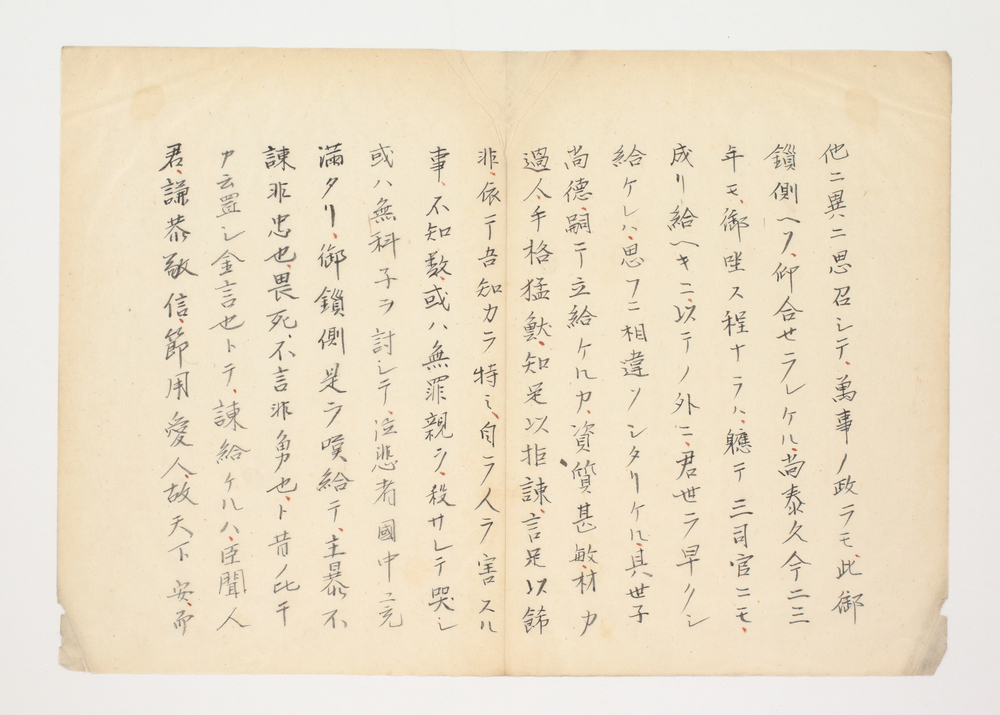 他ニ異ニ思召シテ、萬事ノ政ヲモ、此御
鎖側ヘフ、仰合セラレケル、尚泰久今二三
年モ、御座ス程ナラハ、軈テ三司官ニモ、
成リ給ヘキニ、以テノ外ニ、君世ヲ早クシ
給ケレハ、思フニ相違ソシタリケル、其世子
尚德、嗣テ立給ケルカ、資質甚敏、材力
過人、手格猛獣、知足以拒諫、言足以餝
非、依テ吾知カヲ特ミ、自ラ人ヲ害スル
事、不知数、或ハ無罪親ヲ、殺サレテ哭シ
或ハ無科子ヲ討レテ、泣悲者國中ニ充
満タリ、御鎖側是ヲ嘆給テ、主暴不
諫非忠也、畏死、不言非勇也、ト昔ノ比干
カ云置シ金言也トテ、諫給ケルハ、臣聞人
君、謙恭敬信、節用愛人、故天下安、而